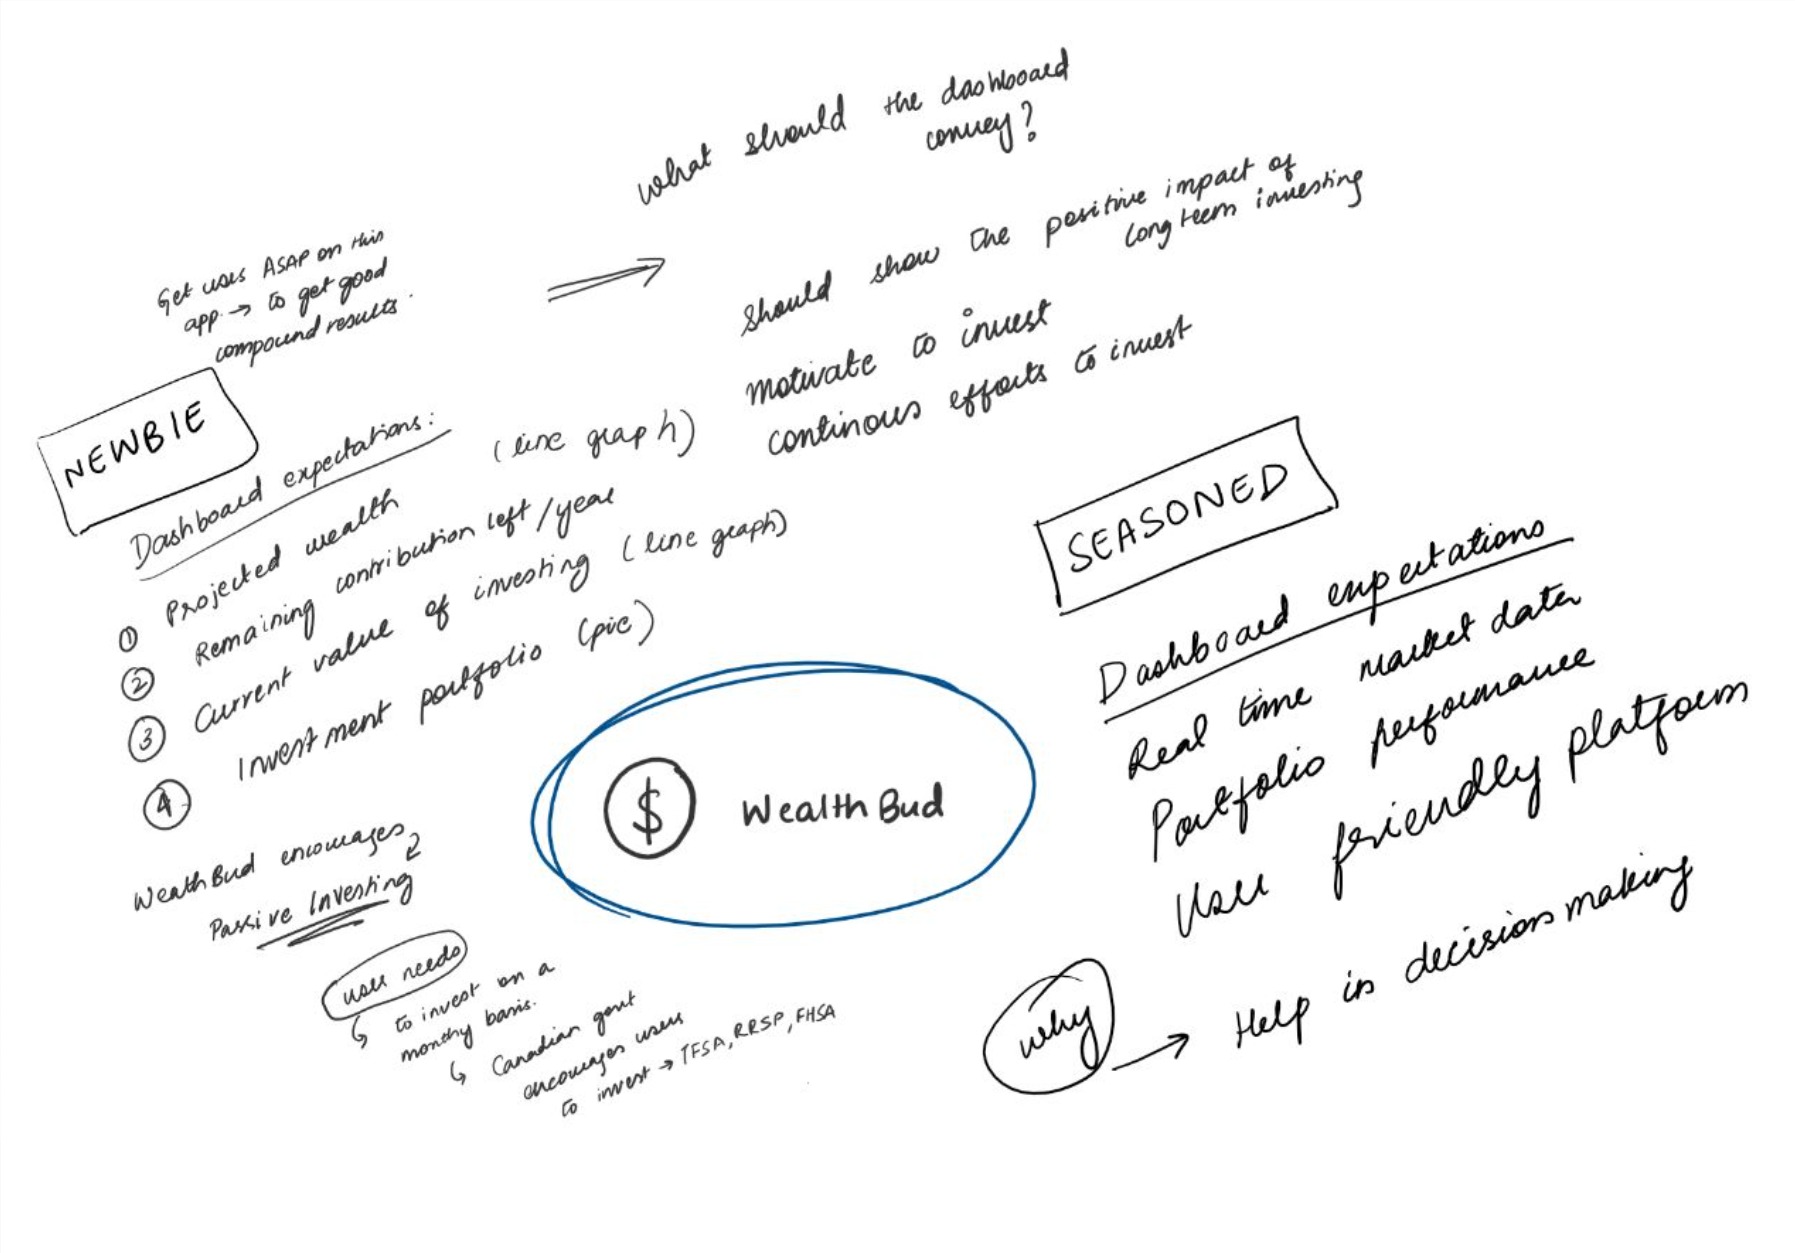 What should the dashboard
convey?
Get users ASAP on this
app → to get good
compound results.
⇒
Should show the positive impact of
long term investing
Motivate to invest
continous efforts to invest
NEWBIE
Dashboard expectations:
① Projected wealth (line graph)
② Remaining contribution left/year
③ Current value of investing (line graph)
④ Investment portfolio (pie)
WealthBud encourages
Passive Investing
user needs
↳ to invest on a
monthy basis.
↳ Canadian govt
encourages users
to invest → TFSA, RRSP, FHSA
$ WealthBud
SEASONED
Dashboard expectations
Real time market data
Portfolio performance
User friendly platform
why → Help in decision making